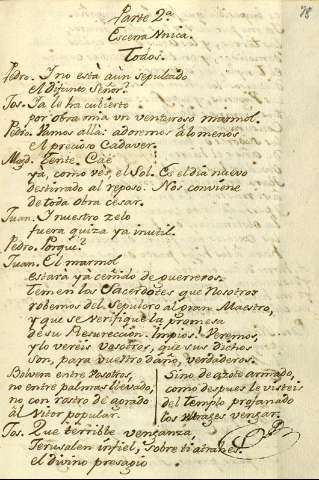 78
Parte 2ª
Escena Unica.
Todos.
Pedro. Y no està aun sepultado
el Difunto Señor?
Jos. Ya le ha cubierto
por obra mia un venturoso marmol.
Pedro. Vamos allà: adoremos à lo menos
el precioso Cadaver.
Magd. Tente. Cae
ya, como vès, el Sol. Es el dia nuevo
destinado al reposo. Nos conviene
de toda obra cesar.
Juan. Y nuestro zelo
fuera quiza ya inutil.
Pedro. Porquè?
Juan. El marmol
estarà ya ceñido de guerreros.
Temen los Sacerdotes que nosotros
robemos del Sepulcro al gran Maestro,
y que se verifique la promesa
de su Resureccion. Impios! Veremos,
y lo vereis vosotros, que sus dichos
son, para vuestro daño, verdaderos.
Bolverà entre nosotros,
no entre palmas llevado,
no con rostro de agrado
al Vitor popular.
Sino de azote armado,
como despues le visteis
del Templo profanado
los ultrages vengar.
Jos. Què terrible venganza
Jerusalen infiel, sobre ti atrahes!
el divino presagio